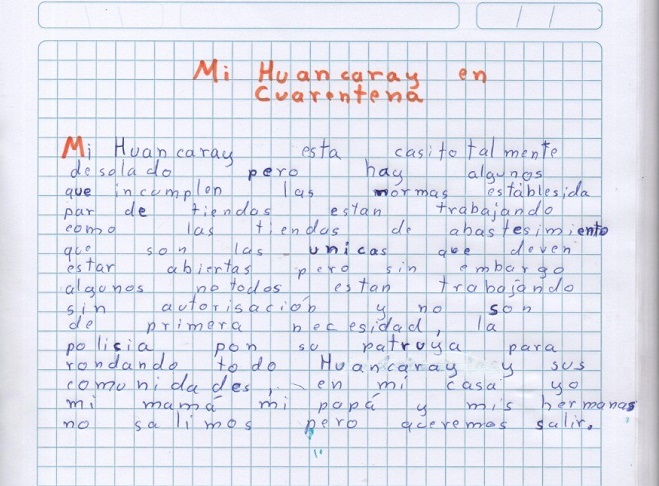 Mi Huancaray en
Cuarentena
Mi Huancaray esta casitotalmente
desolado pero hay algunos
que incumplen las normas establesida
par de tiendas estan trabajando
como las tiendas de abastesimiento
que son las unicas que deven
estar abiertas pero sin embargo
algunos no todos estan trabajando
sin autorisación y no son
de primera necesidad, la
polisia pon su patruya para
rondando todo Huancaray y sus
comunidades, en mi casa yo
mi mamá mi papá y mis hermanas
no salimos pero queremos salir.